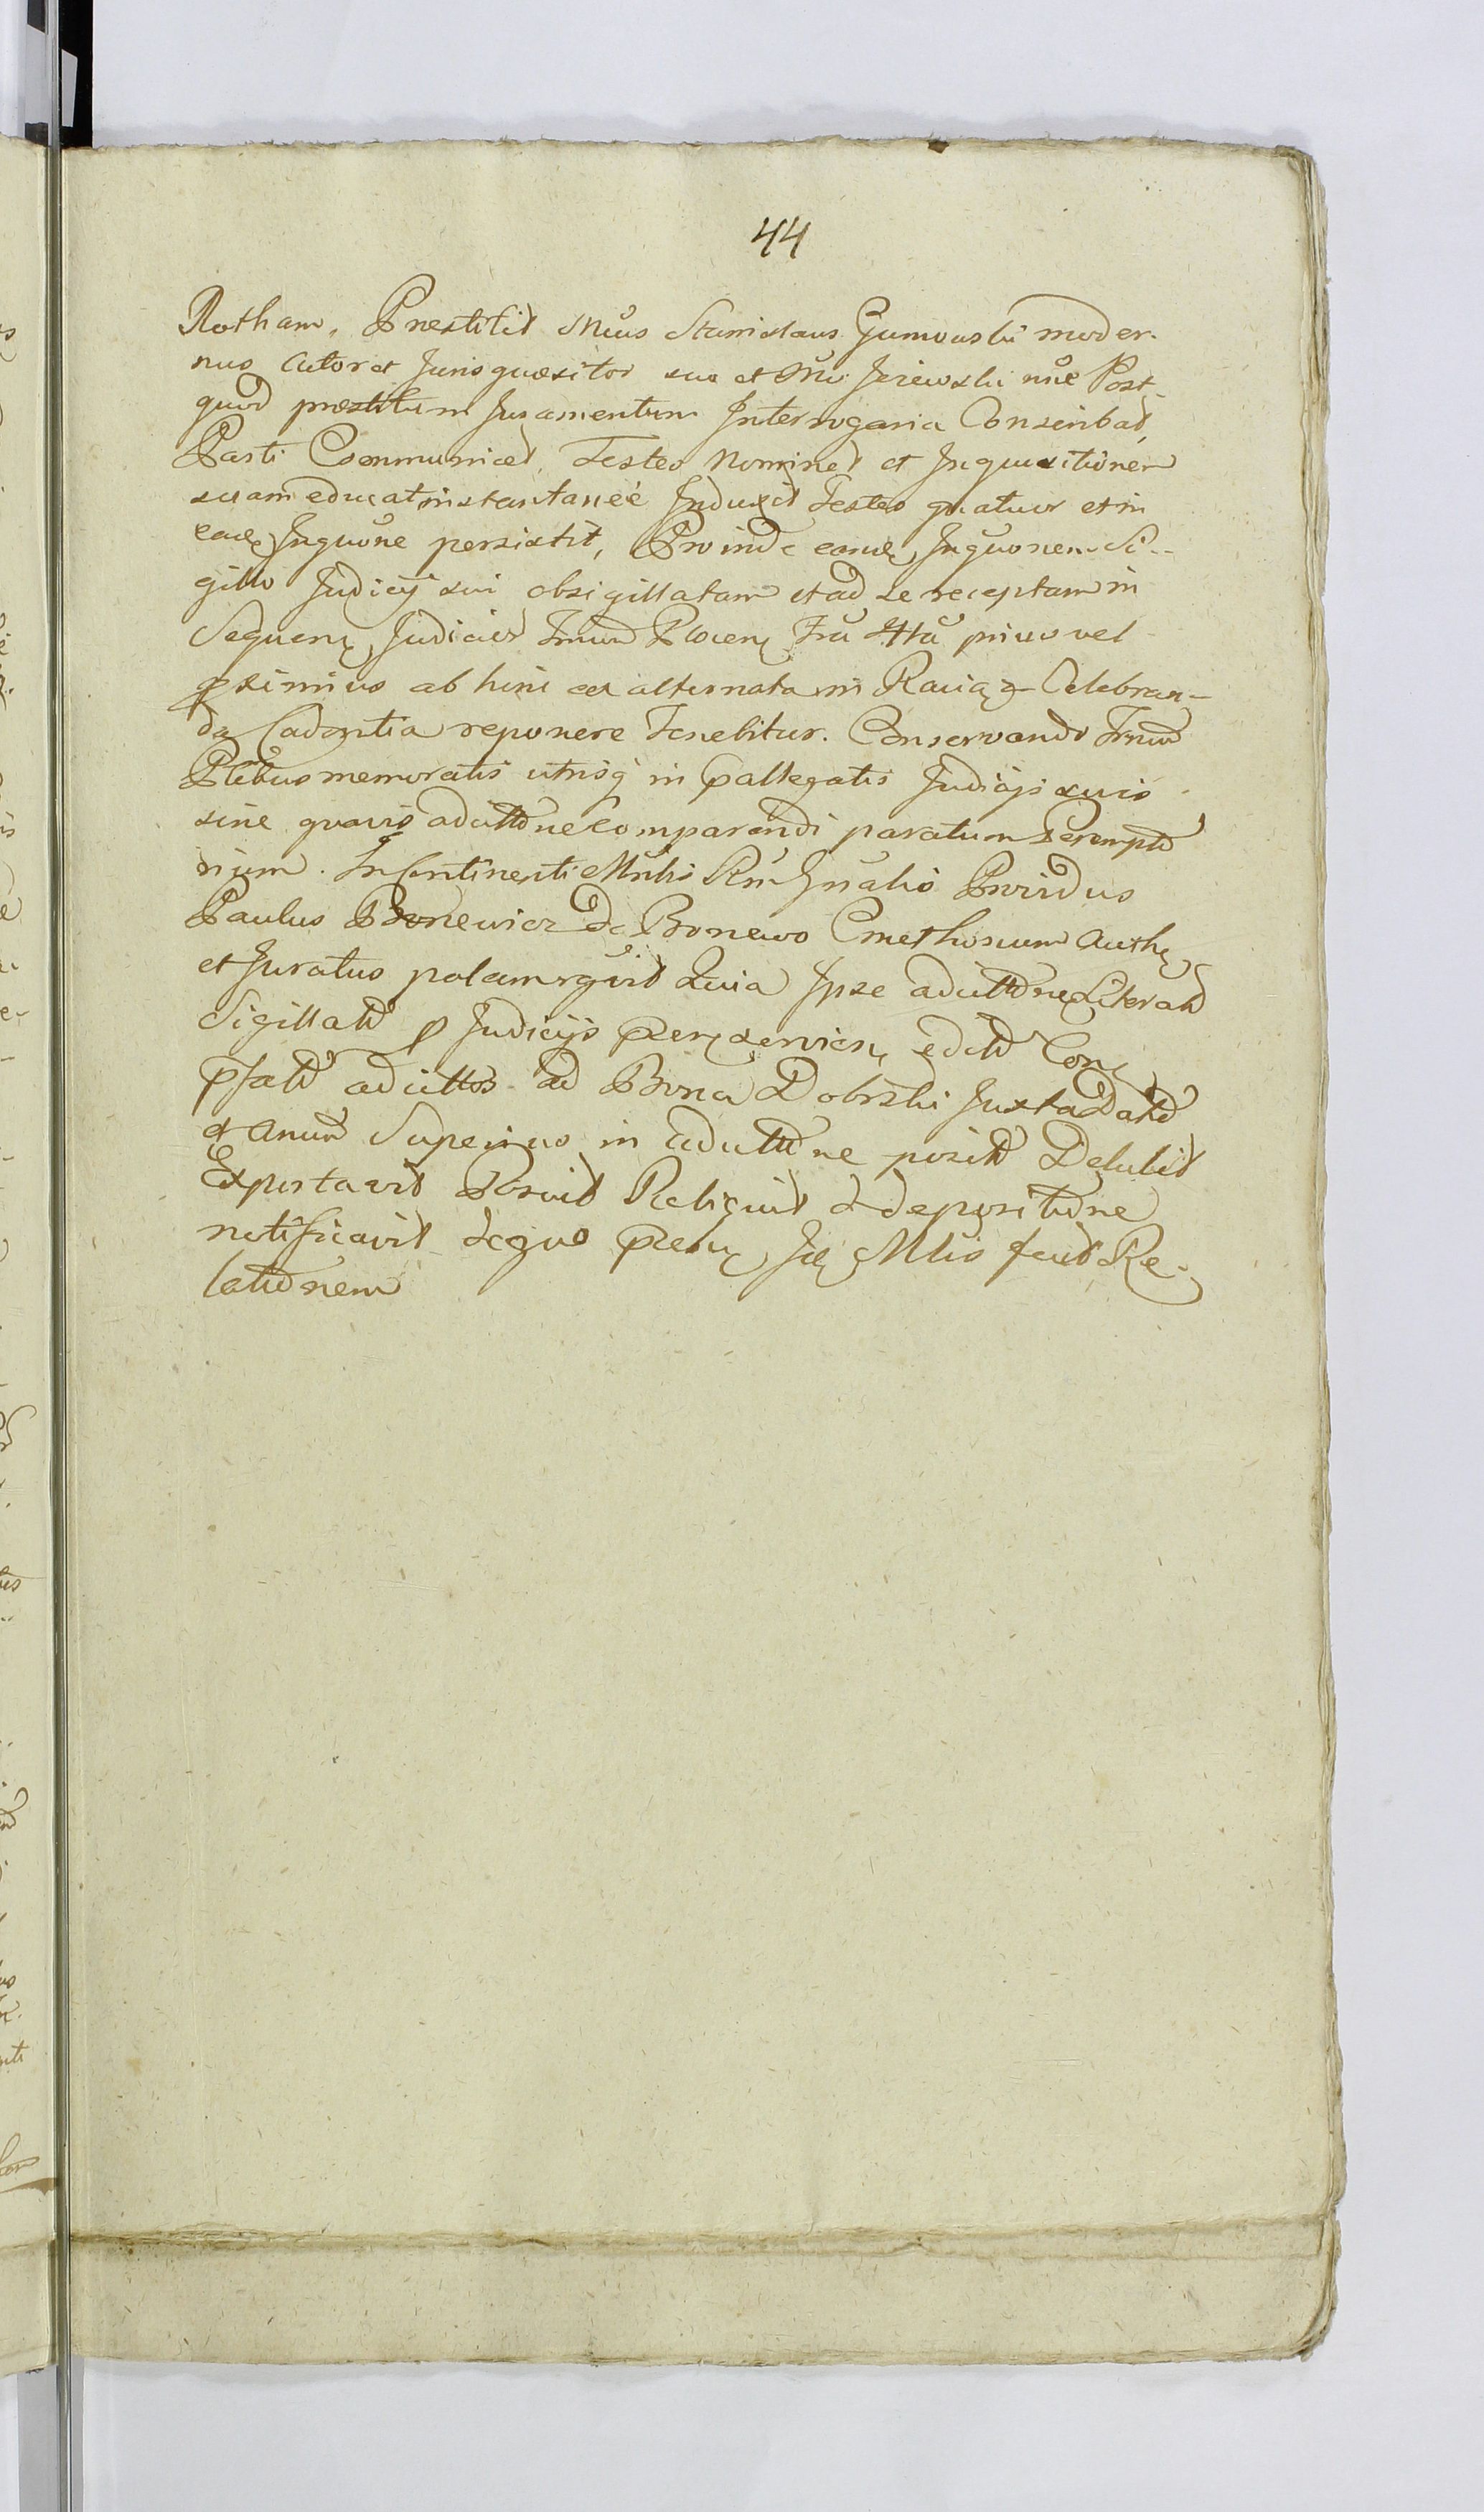 44
Rotham. Præstitit Mcus Stanislaus Gumouski moder-
nus Actor et Jurisquæsitor suo et Mci Jeżewski nne Post
quod præstitum Juramentum Interrogaria Conscribat,
Parti Communicet, Testes Nominet et Inquisitionem
suam educat instantanee Induxit Testes quatuor et in
eade Inquone persistit, Proinde eande Inquonem Si-
gillo Judicij sui obsigillatam et ad se receptam in
Sequen Judicior Trnum Plocen
proximius ab hinc ex alternata in Celebran-
da Cadentia reponere Tenebitur. Conservando Trnum
Ptibus memoratis utrisq in pallegatis Judicijs suis
sine quavis adcittone Comparendi paratum Perempto
rium. In Continenti Providus
Paulus Bonewicz De Bonewo Cmethonum Authe
et Juratus palam rguit Quia Ipse adcittone Literato
Sigillato p Judicijs edito Con
pfato adcittos ad Bona Dobrski Juxta Dato
et Anum Superius in adcittone posito Detulit
Exportavit Posuit Reliquit et depositione
notificavit Deque fecit Re-
lationem